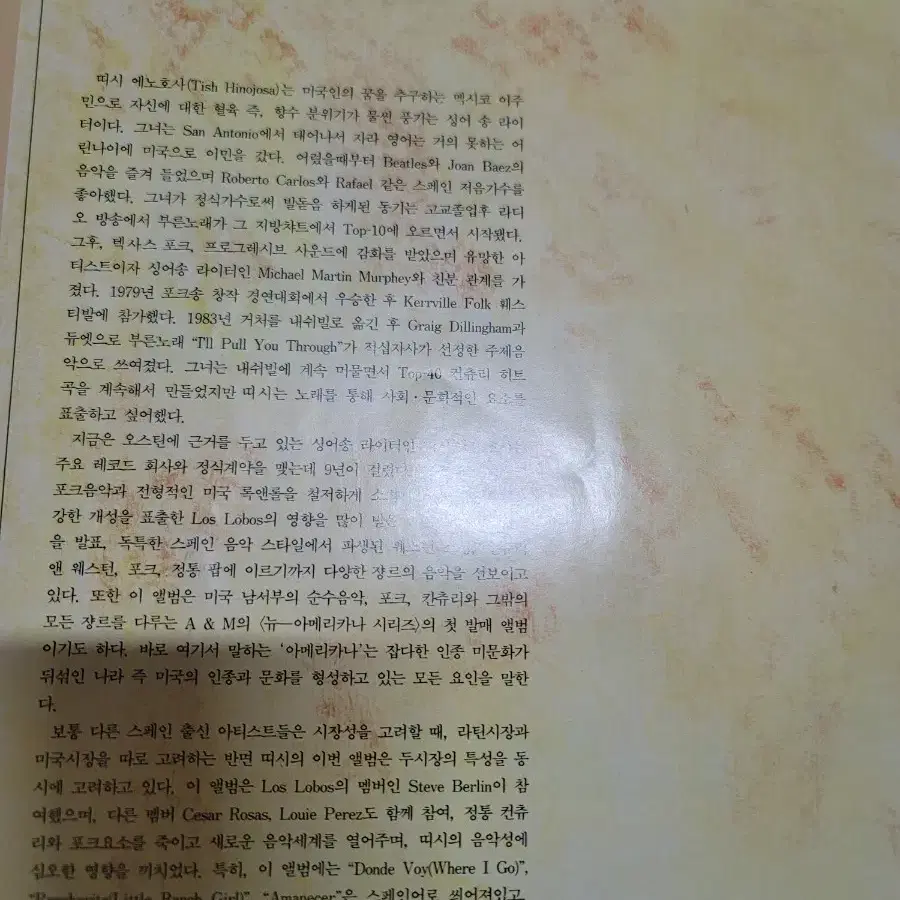 띠시 에노호사(Tish Hinojosa)는 미국인의 꿈을 추구하는 멕시코 이주
민으로 자신에 대한 혈육 즉, 향수 분위기가 물씬 풍기는 싱어 송 라이
터이다. 그녀는 San Antonio에서 태어나서 자라 영어는 거의 못하는 어
린나이에 미국으로 이민을 갔다. 어렸을때부터 Beatles와 Joan Baez의
음악을 즐겨 들었으며 Roberto Carlos와 Rafael 같은 스페인 저음가수를
좋아했다. 그녀가 정식가수로써 발돋음 하게된 동기는 고교졸업후 라디
오 방송에서 부른노래가 그 지방챠트에서 Top-10에 오르면서 시작됐다.
그후, 텍사스 포크, 프로그레시브 사운드에 감화를 받았으며 유망한 아
티스트이자 싱어송 라이터인 Michael Martin Murphey와 친분 관계를 가
졌다. 1979년 포크송 창작 경연대회에서 우승한 후 Kerrville Folk 훼스
티발에 참가했다. 1983년 거처를 내쉬빌로 옮긴 후 Graig Dillingham과
듀엣으로 부른노래 “I'll Pull You Through”가 적십자사가 선정한 주제음
악으로 쓰여졌다. 그녀는 내쉬빌에 계속 머물면서 Top-40 컨츄리 히트
곡을 계속해서 만들었지만 띠시는 노래를 통해 사회·문화적인 요소를
표출하고 싶어했다.
지금은 오스틴에 근거를 두고 있는 싱어송 라이터인
주요 레코드 회사와 정식계약을 맺는데 9년이 걸렸다
포크음악과 전형적인 미국 록앤롤을 철저하게
강한 개성을 표출한 Los Lobos의 영향을 많이
을 발표, 독특한 스페인 음악 스타일에서 파생된
앤 웨스턴, 포크, 정통 팝에 이르기까지 다양한 쟝르의 음악을 선보이고
있다. 또한 이 앨범은 미국 남서부의 순수음악, 포크, 칸츄리와 그밖의
모든 쟝르를 다루는 A & M의 〈뉴―아메리카나 시리즈〉의 첫 발매 앨범
이기도 하다. 바로 여기서 말하는 ‘아메리카나’는 잡다한 인종 미문화가
뒤섞인 나라 즉 미국의 인종과 문화를 형성하고 있는 모든 요인을 말한
다.
보통 다른 스페인 출신 아티스트들은 시장성을 고려할 때, 라틴시장과
미국시장을 따로 고려하는 반면 띠시의 이번 앨범은 두시장의 특성을 동
시에 고려하고 있다. 이 앨범은 Los Lobos의 멤버인 Steve Berlin이 참
여했으며, 다른 멤버 Cesar Rosas, Louie Perez도 함께 참여, 정통 컨츄
리와 포크요소를 죽이고 새로운 음악세계를 열어주며, 띠시의 음악성에
심오한 영향을 끼치었다. 특히, 이 앨범에는 “Donde Voy(Where I Go)”,
Ranch Girl)”, “Amanecer”은 스페인어로 씌어져있고,